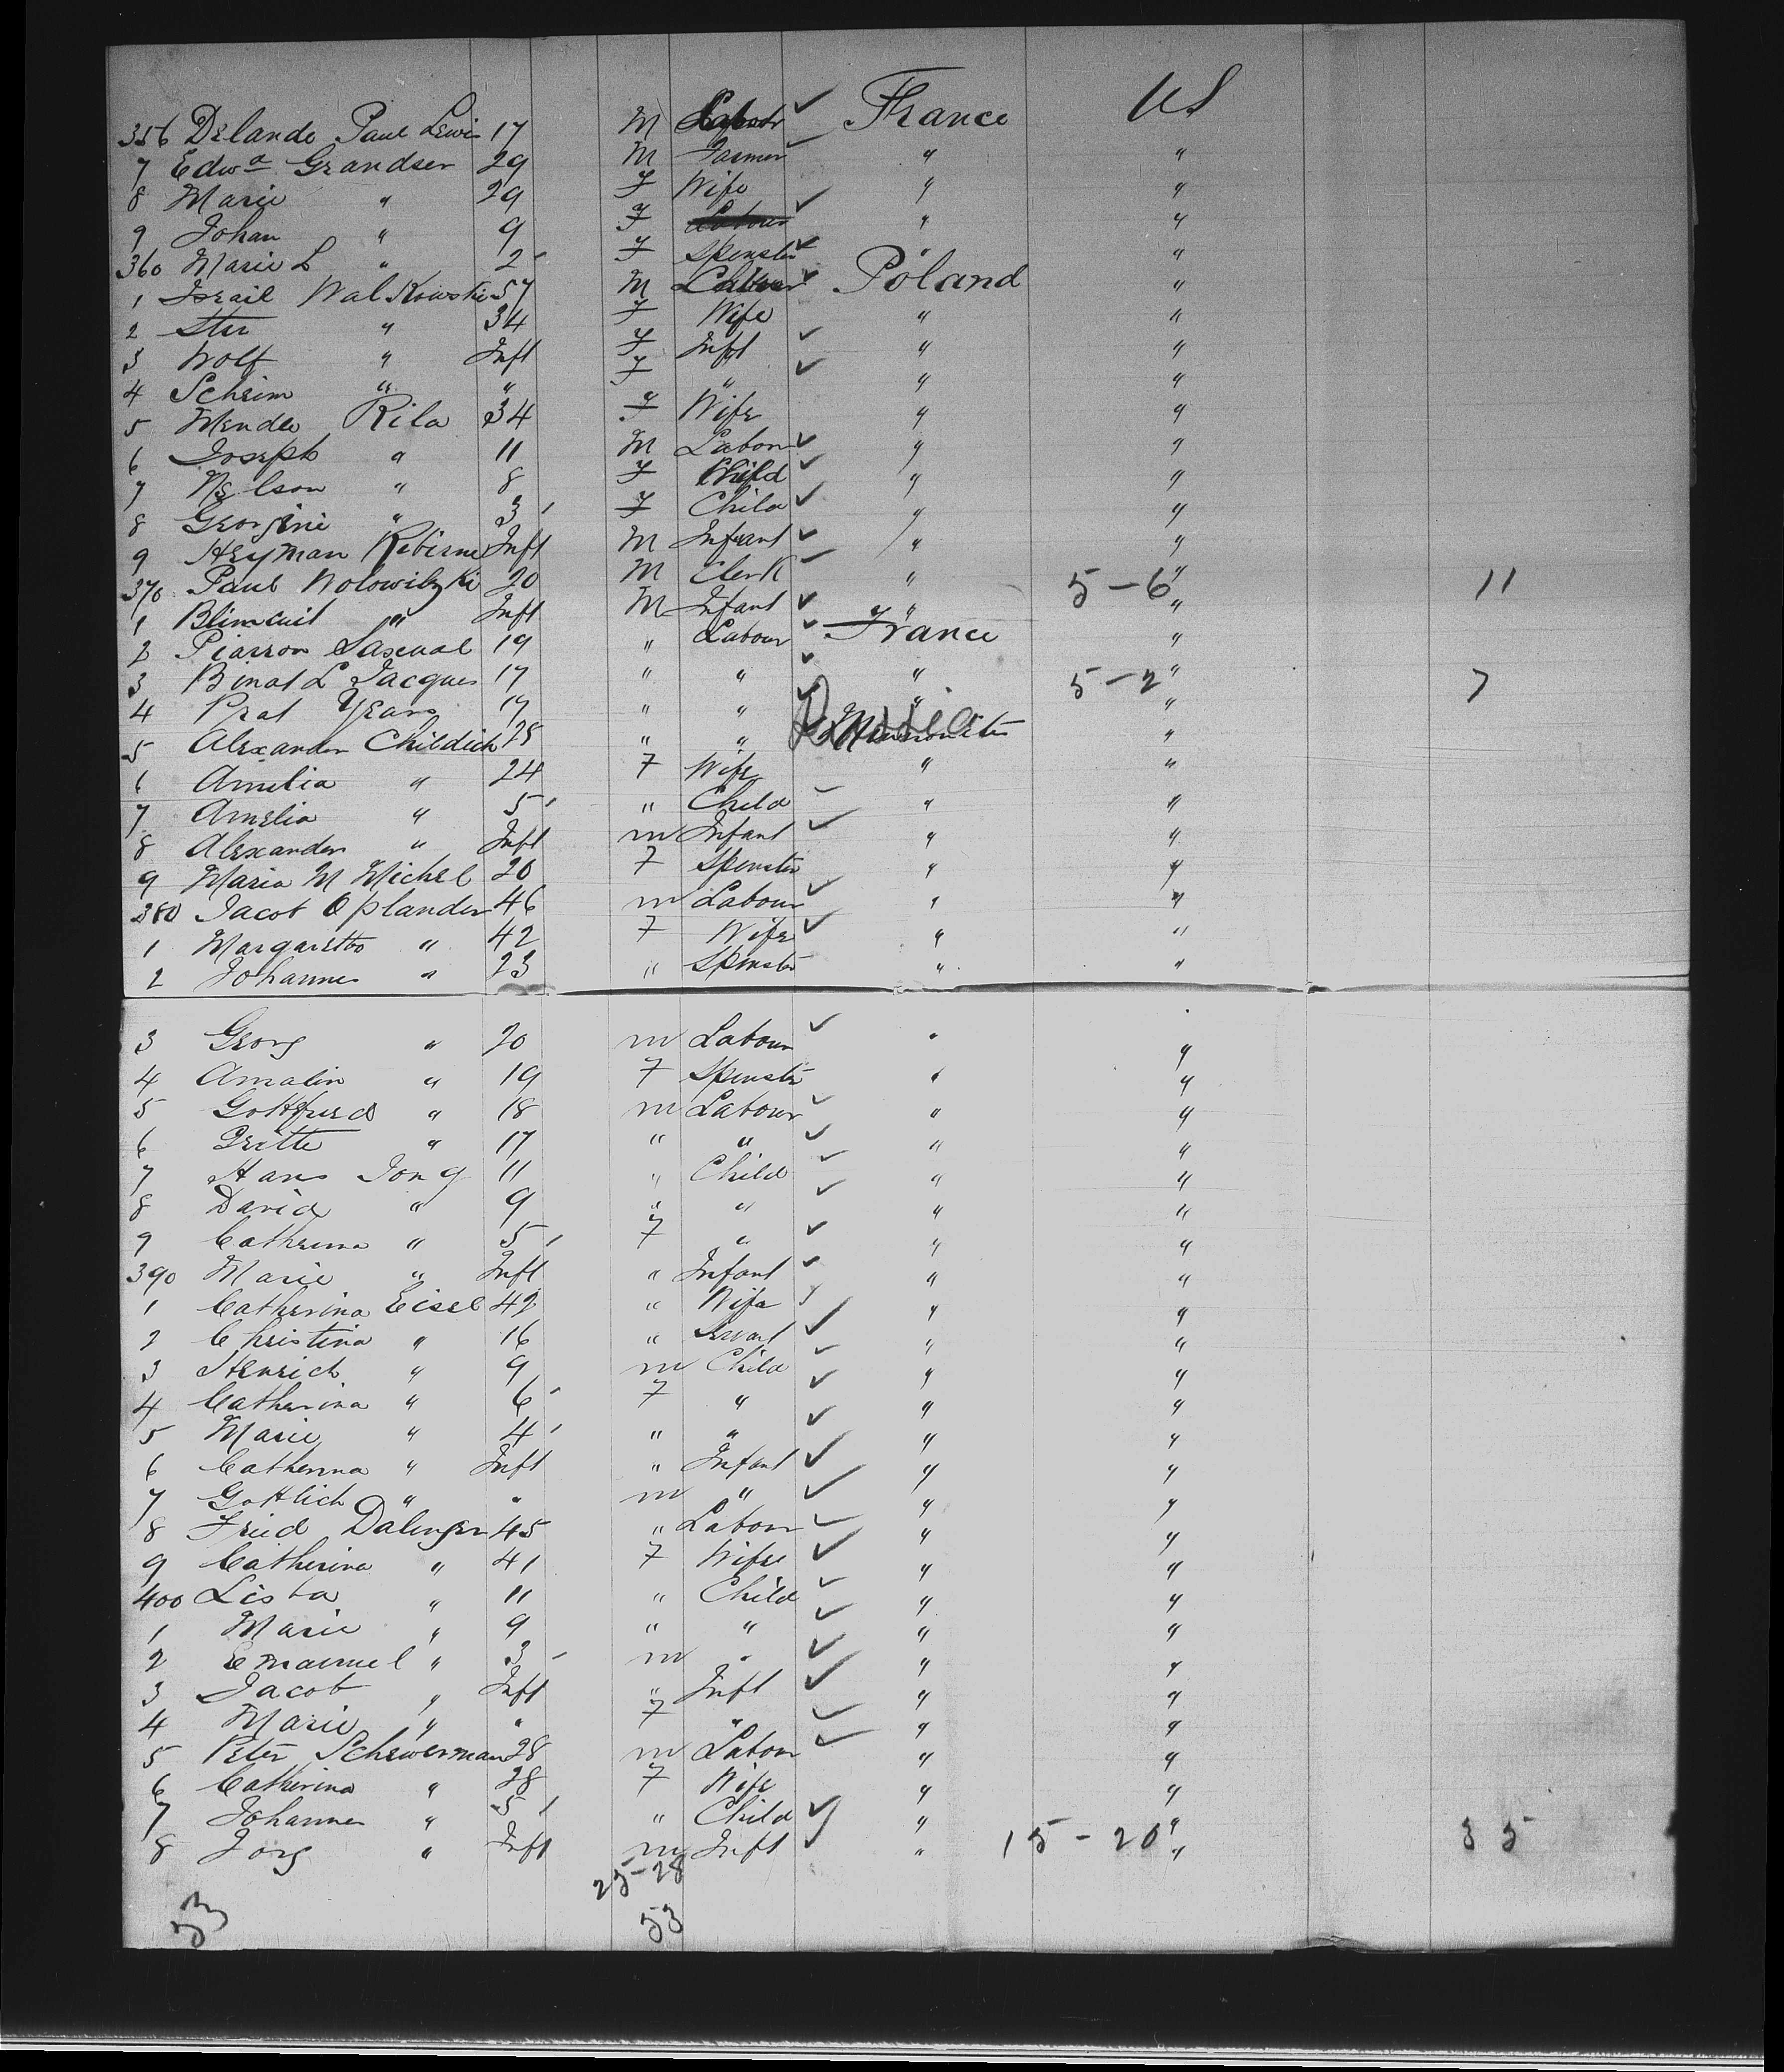 356 Delande Paul Lewis 17 M Labour ✓ France US
7 Edwd Grandser 29 M Farmer ✓ " "
8 Marie " 29 F Wife " "
9 Johan " 9 F ✓ " "
360 Marie L " 2 F Spenster ✓ " "
1 Israil Walkowski 57 M Labour ✓ Poland "
2 " 34 F Wife " "
3 Wolf " Inft F Inft ✓ " "
4 Scheim " " F " ✓ " "
5 Mendle Rila 34 F Wife " "
6 Joseph " 11 M Labour ✓ " "
7 Nelson " 8 F Child ✓ " "
8 Georgine " 3 F Child ✓ " "
9 Heyman Inft M Infant ✓ " "
370 Paul Wolowitzki 20 M Clerk ✓ " 5-6 " 11
1 " Inft M Infant ✓ " "
2 Piarron Pascual 19 " Labour ✓ France "
3 Binat L Jacques 17 " " ✓ " 5-2 " 7
4 Prat Years 17 " " ✓ " "
5 Alexander Childich 28 " " Russia "
6 Amelia " 24 F Wife " "
7 Amelia " 5 " Child ✓ " "
8 Alexander " Inft m Infant ✓ " "
9 Maria M Michel 20 F Spenster " "
380 Jacob Oplander 46 m Labour ✓ " "
1 Margarettha " 42 F Wife ✓ " "
2 Johannes " 23 " Spenster " "
3 Georg " 20 m Labour ✓ " "
4 Amalin " 19 F Spenster " "
5 Gottfried " 18 m Labour ✓ " "
6 " 17 " " ✓ " "
7 Hans Jong 11 " Child ✓ " "
8 David " 9 " " ✓ " "
9 Cathrina " 5 F " ✓ " "
390 Marie " Inft " Infant ✓ " "
1 Catherina Eisel 42 " Wife " "
2 Christina " 16 " Servant ✓ " "
3 Henrich " 9 m Child ✓ " "
4 Catherina " 6 F " ✓ " "
5 Marie " 4 " " ✓ " "
6 Catherina " Inft " Infant ✓ " "
7 Gottlich " " m " ✓ " "
8 Fried Dalinger 45 " Labour ✓ " "
9 Catherina " 41 F Wife ✓ " "
400 Lisba " 11 " Child ✓ " "
1 Marie " 9 " " ✓ " "
2 Emanuel " 3 m " ✓ " "
3 Jacob " Inft " Inft ✓ " "
4 Marie " " F " ✓ " "
5 Peter Schewerman 28 m Labour ✓ " "
6 Catherina " 28 F Wife " "
7 Johannes " 5 " Child ✓ " "
8 Jorg " Inft m Inft ✓ " 15-20 " 35
25-28
53 53